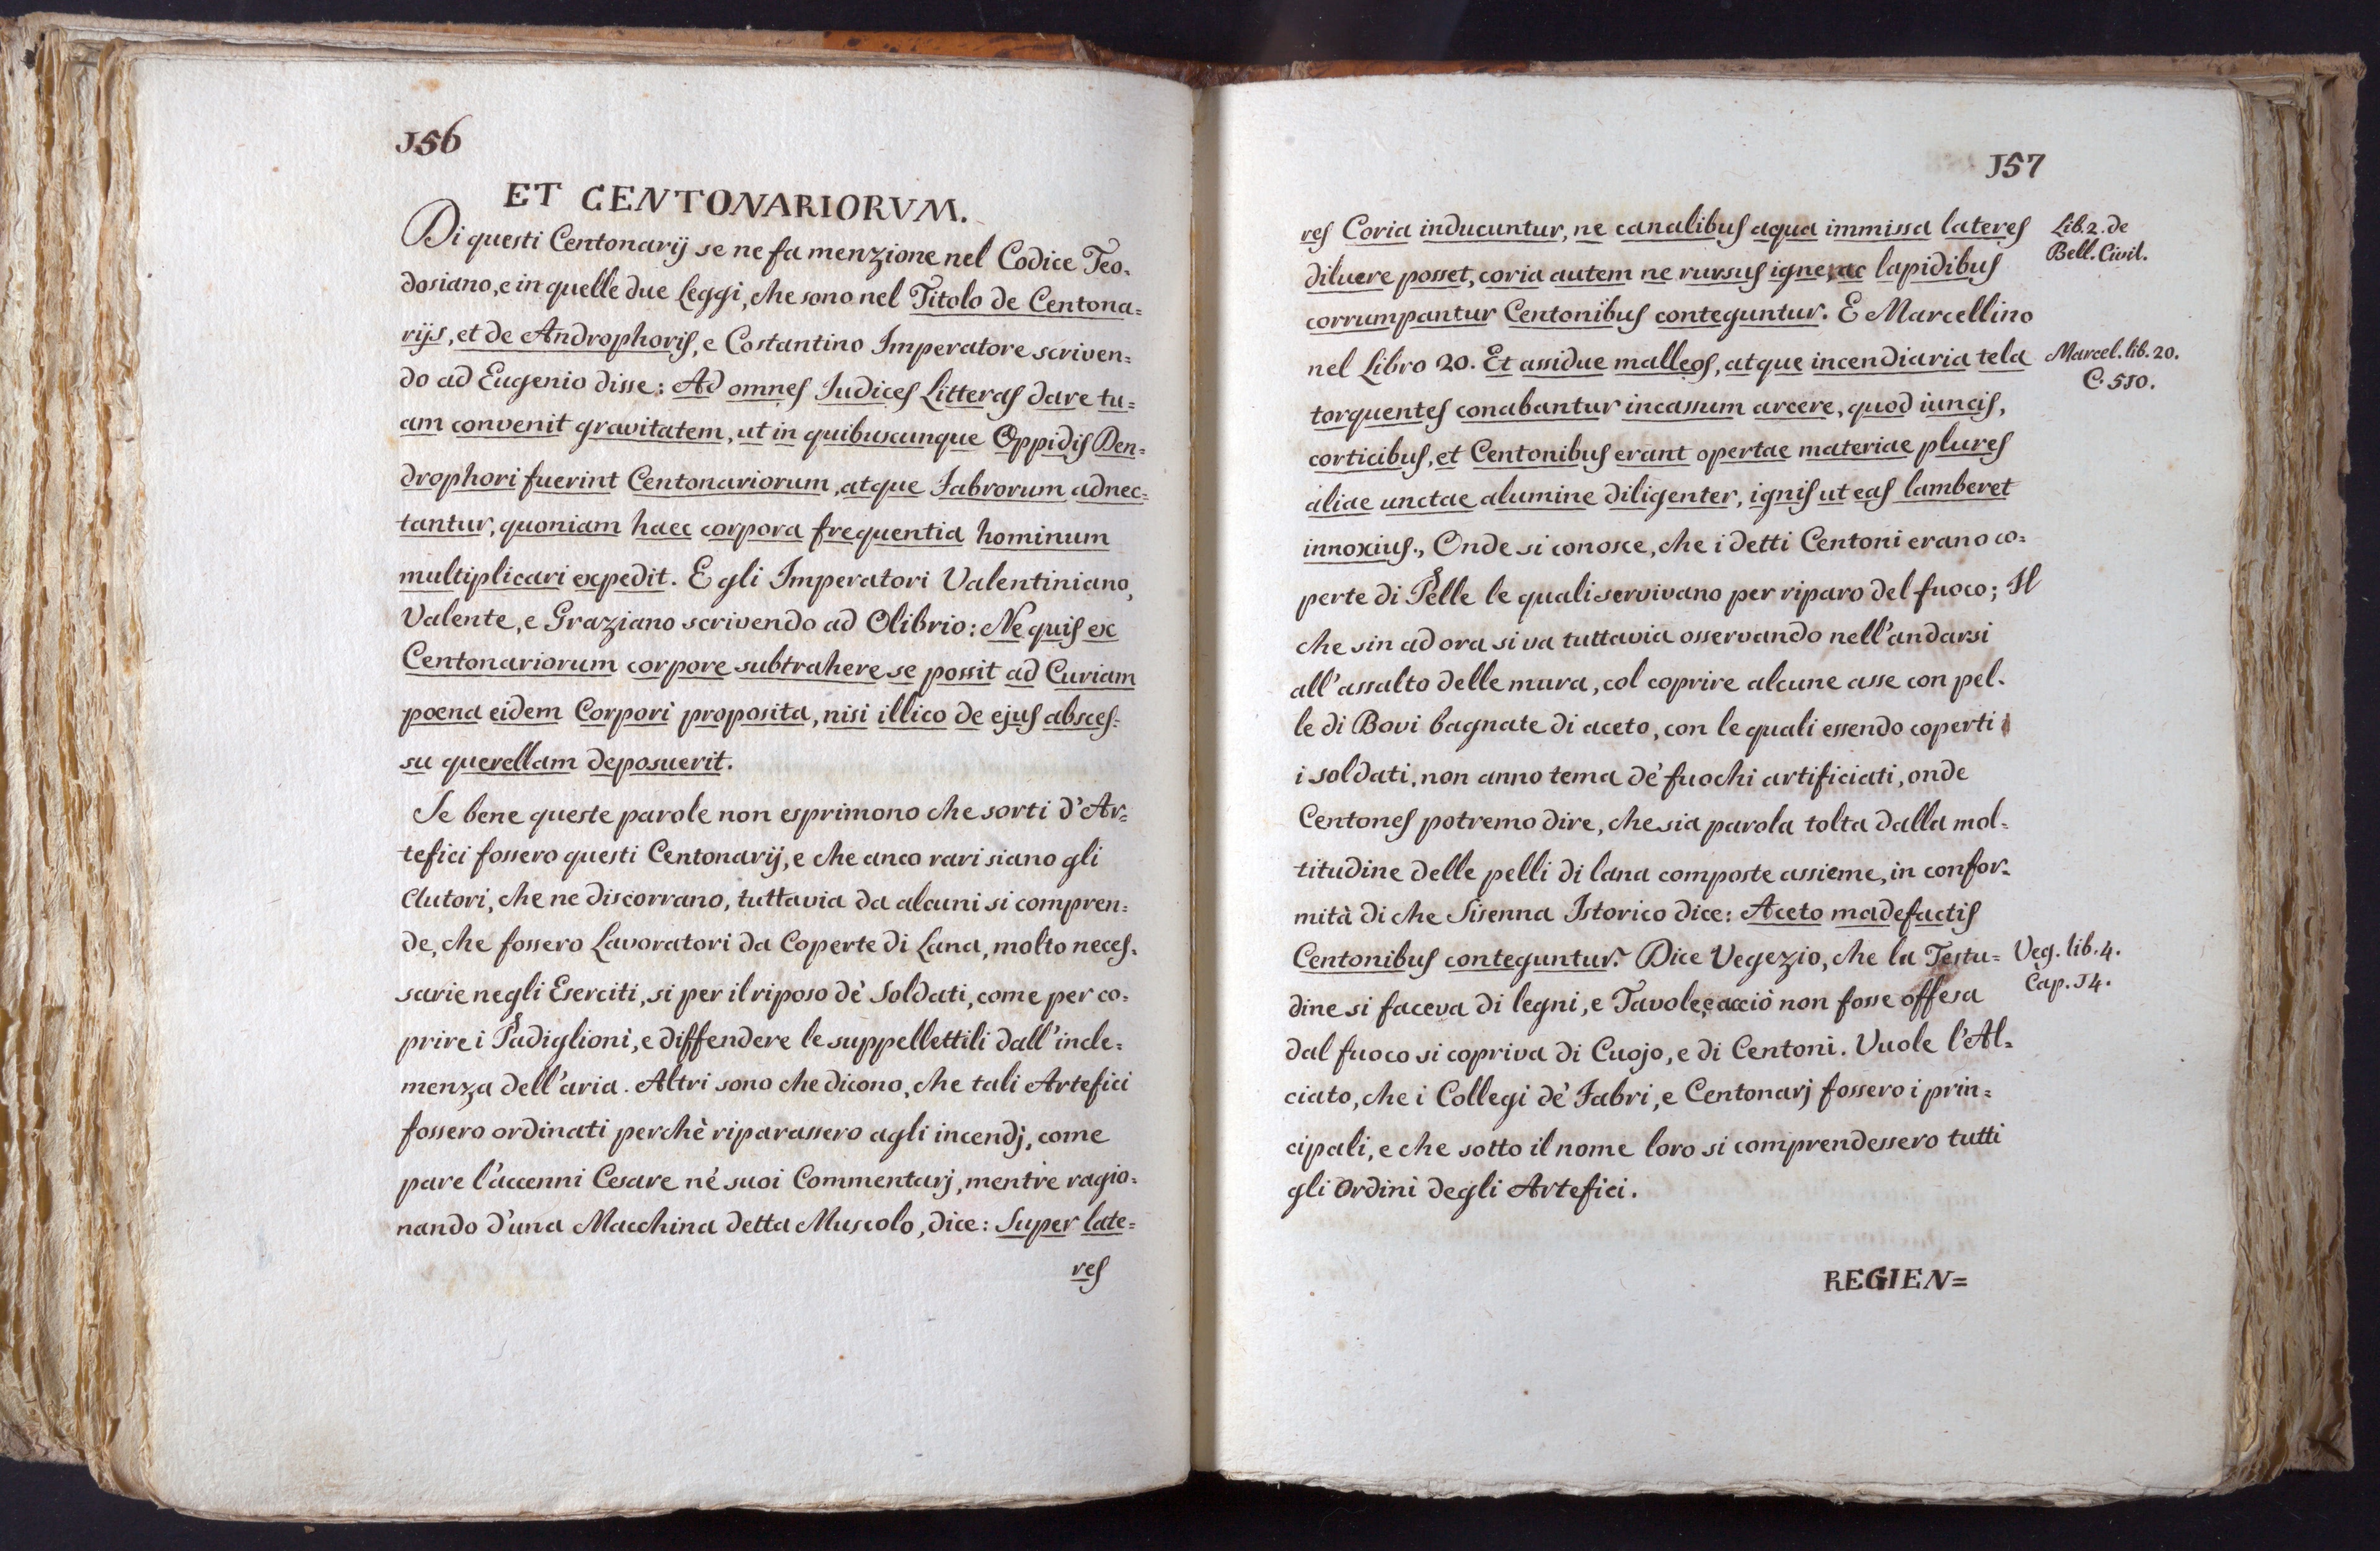 156
ET CENTONARIORVM.
Di questi Centonarij se ne fa menzione nel Codice Teo=
dosiano, e in quelle due Leggi, che sono nel Titolo de Centona=
rijs, et de Androphoris, e Costantino Imperatore scriven=
do ad Eugenio disse: Ad omnes Iudices Litteras dare tu=
am convenit gravitatem, ut in quibuscunque Oppidis Den=
drophori fuerint Centonariorum, atque Fabrorum adnec=
tantur, quoniam haec corpora frequentia hominum
multiplicari expedit. E gli Imperatori Valentiniano,
Valente, e Graziano scrivendo ad Olibrio: Ne quis ex
Centonariorum corpore subtrahere se possit ad Curiam
poena eidem Corpori proposita, nisi illico de ejus absces=
su querellam deposuerit.
Se bene queste parole non esprimono che sorti d'Ar=
tefici fossero questi Centonarij, e che anco rari siano gli
Autori, che ne discorrano, tuttavia da alcuni si compren=
de, che fossero Lavoratori da Coperte di Lana, molto neces=
sarie negli Eserciti, si per il riposo dè Soldati, come per co=
prire i Padiglioni, e diffendere le suppellettili dall'incle=
menza dell'aria. Altri sono che dicono, che tali Artefici
fossero ordinati perchè riparassero agli incendj, come
pare l'accenni Cesare né suoi Commentarj, mentre ragio=
nando d'una Macchina detta Muscolo, dice: Super late=
res
157
res Coria inducuntur, ne canalibus aqua immissa lateres
diluere posset, coria autem ne rursus igne, ac lapidibus
corrumpantur Centonibus conteguntur. E Marcellino
nel Libro 20. Et assidue malleos, atque incendiaria tela
torquentes conabantur incassum arcere, quod iuncis,
corticibus, et Centonibus erant opertae materiae plures
aliae unctae alumine diligenter, ignis ut eas lamberet
innoxius., Onde si conosce, che i detti Centoni erano co=
perte di Pelle le quali servivano per riparo del fuoco; Il
che sin ad ora si va tuttavia osservando nell'andarsi
all'assalto delle mura, col coprire alcune asse con pel=
le di Bovi bagnate di aceto, con le quali essendo coperti
i soldati, non anno tema dè fuochi artificiati, onde
Centones potremo dire, che sia parola tolta dalla mol=
titudine delle pelli di lana composte assieme, in confor=
mità di che Sisenna Istorico dice: Aceto madefactis
Centonibus conteguntur. Dice Vegezio, che la Testu=
dine si faceva di legni, e Tavole, e acciò non fosse offesa
dal fuoco si copriva di Cuojo, e di Centoni. Vuole l'Al=
ciato, che i Collegi dè Fabri, e Centonarj fossero i prin=
cipali, e che sotto il nome loro si comprendessero tutti
gli Ordini degli Artefici.
REGIEN=
Lib. 2. de
Bell. Civil.
Marcel. lib. 20.
C. 510.
Veg. lib. 4.
Cap. 14.